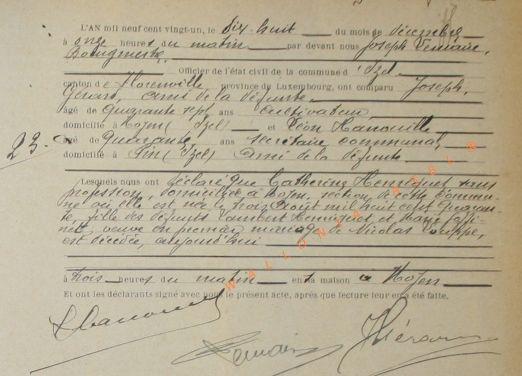 L'AN mil neuf cent vingt-un, le dix-huit du mois de décembre
à onze heures du matin par devant nous Joseph Lemaire,
Bourgmestre
Officier de l'état civil de la commune d'Izel
canton de Florenville province de Luxembourg, ont comparu Joseph
ami de la défunte
âgé de quarante sept ans cultivateur
domicilié à Moyen (Izel) et Léon Hanouille
23.
âgé de quarante ans secrétaire communal
domicilié à Pin (Izel) ami de la défunte
Lesquels nous ont déclaré que Catherine Henriquet sans
profession, domiciliée à Moyen, section de cette commune
où elle est née le trois août mil huit cent quarante
fille des défunts Lambert Henriquet et
veuve en premier mariage de Nicolas
est décédée, aujourd'hui
à trois heures du matin en sa maison à Moyen
Et ont les déclarants signé avec nous le présent acte, après que lecture leur en a été faite.
WALLONIA ASBL
Hanouille Lemaire